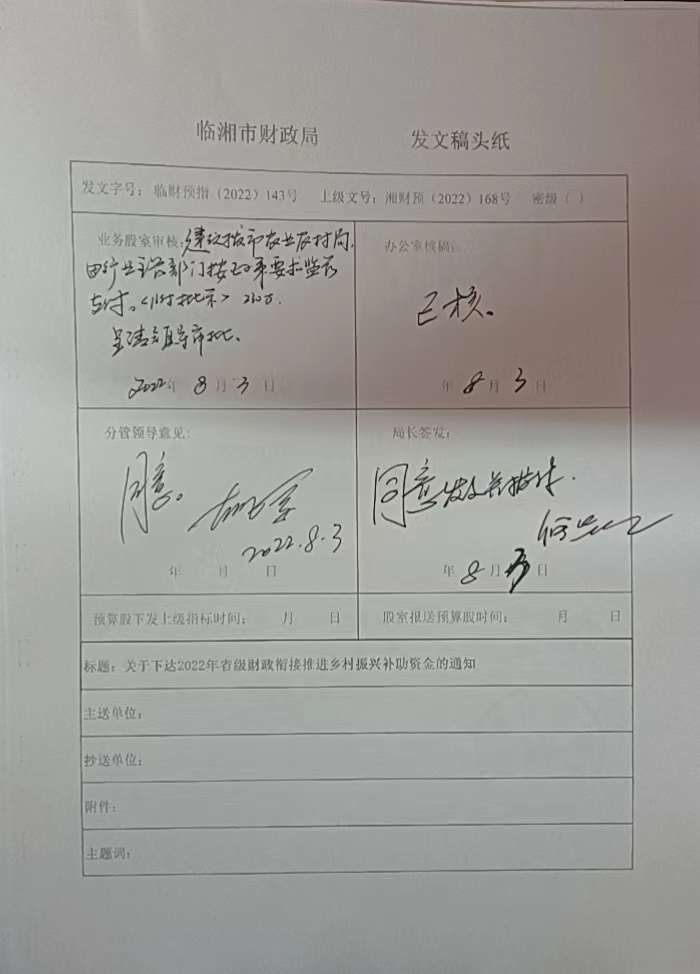 临湘市财政局 发文稿头纸
发文字号：临财预指（2022）143号 上级文号：湘财预（2022）168号 密级（ ）
业务股室审核：建议拨市农业农村局，
由行业主管部门按政策要求监管
支付。
呈请领导审批。
2022年 8月3日
办公室核稿：
已核。
年 8月3日
分管领导意见：
同意。
2022.8.3
年 月 日
局长签发：
同意发文并拨付.
年 8月3日
预算股下发上级指标时间： 月 日
股室报送预算股时间： 月 日
标题：关于下达2022年省级财政衔接推进乡村振兴补助资金的通知
主送单位：
抄送单位：
附件：
主题词：